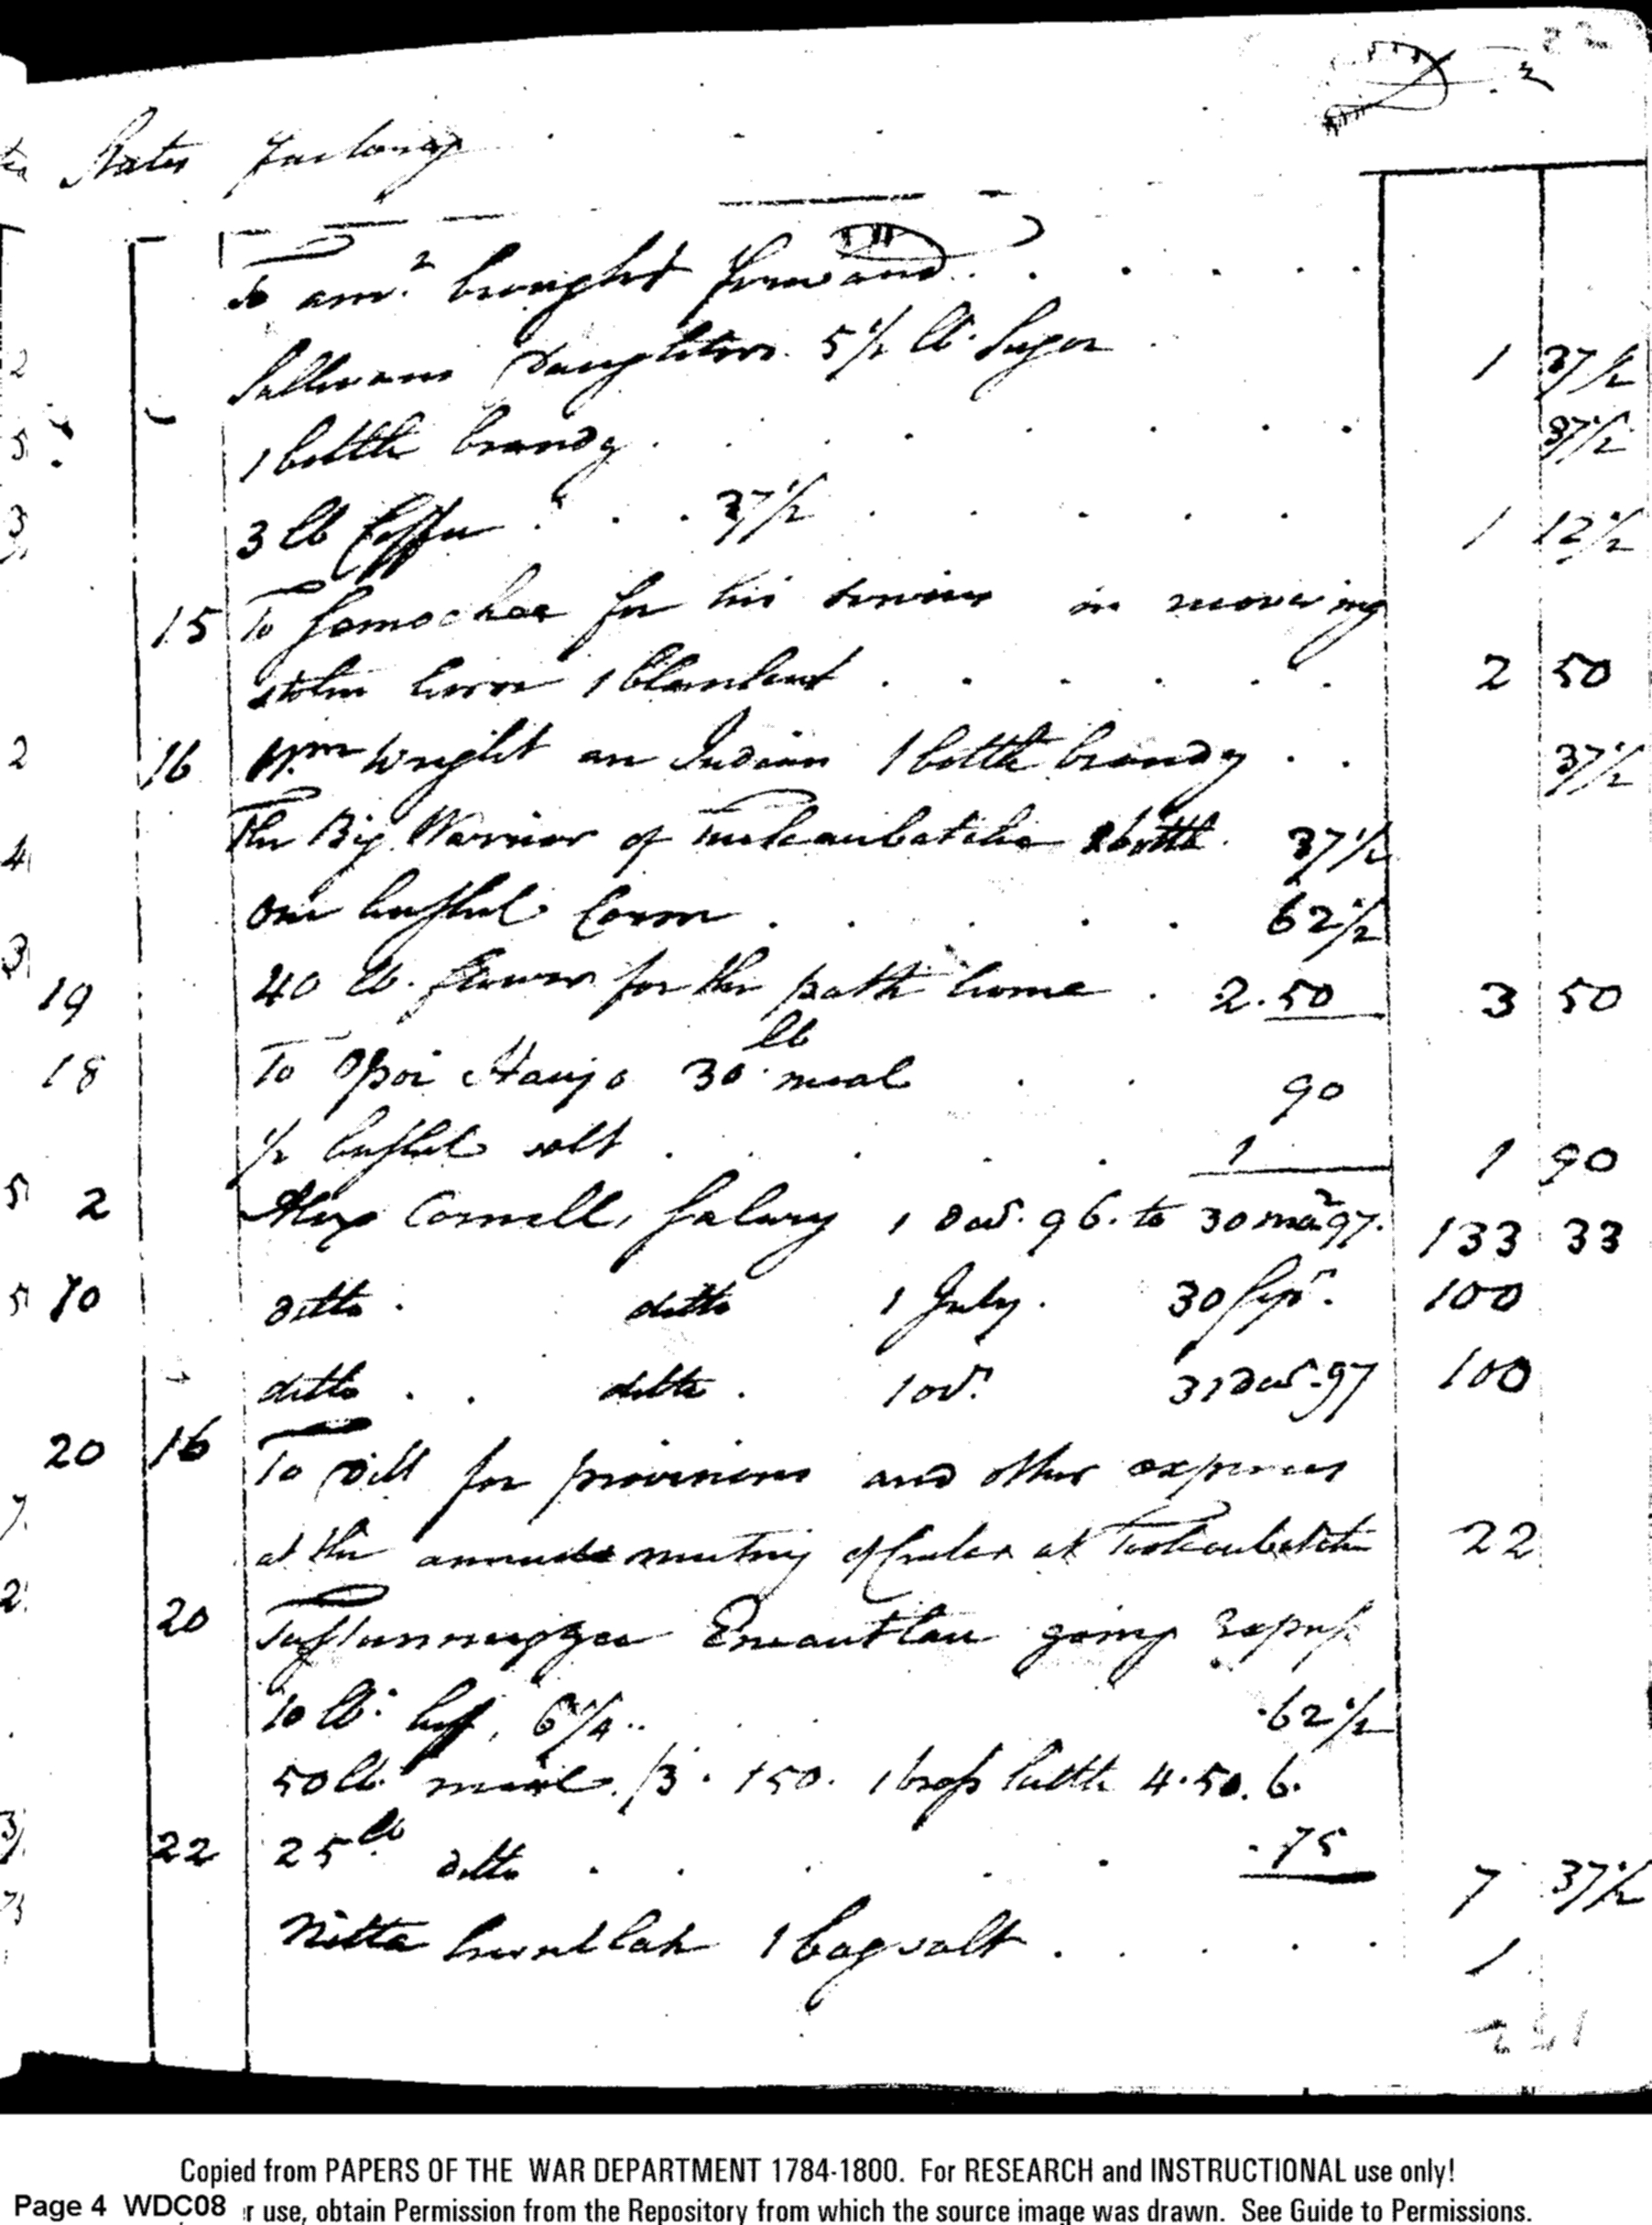 States factory
To am.t brought forward
Sullivans Daughters. 5 1/2 lb. Sugar 1 37 1/2
1 bottle brandy 37 1/2
3 lb Coffee 37 1/2 1 12 1/2
15 To for his services in
stolen horse 1 blanket 2 50
16 Wm Wright an Indian 1 bottle brandy 37 1/2
The Big Warrior of Tuckaubatche 1 bottle 37 1/2
One bushel Corn 62 1/2
19 40 lb. flower for the path home 2.50 3 50
18 To Opoi Haujo 30 lb meal 90
1/2 bushel salt 1 1 90
2 Alex Cornell, Salary 1 Decr. 96. to 30 mar 97. 133 33
10 ditto ditto 1 July. 30 Sepr. 100
ditto ditto 1 Octr. 31 Decr. 97 100
20 16 To bill for provisions and other expences
at the annual meeting of Creeks at Tookaubatche 22
20 going Express
10 lb. beef, 6 1/4 62 1/2
50 lb. meal. /3. 150. 1 brass kettle 4.50. 6.
22 25 lb ditto .75 7 37 1/2
Nitta 1 bag salt 1
Copied from PAPERS OF THE WAR DEPARTMENT 1784-1800. For RESEARCH and INSTRUCTIONAL use only!
Page 4 WDC08 r use, obtain Permission from the Repository from which the source image was drawn. See Guide to Permissions.